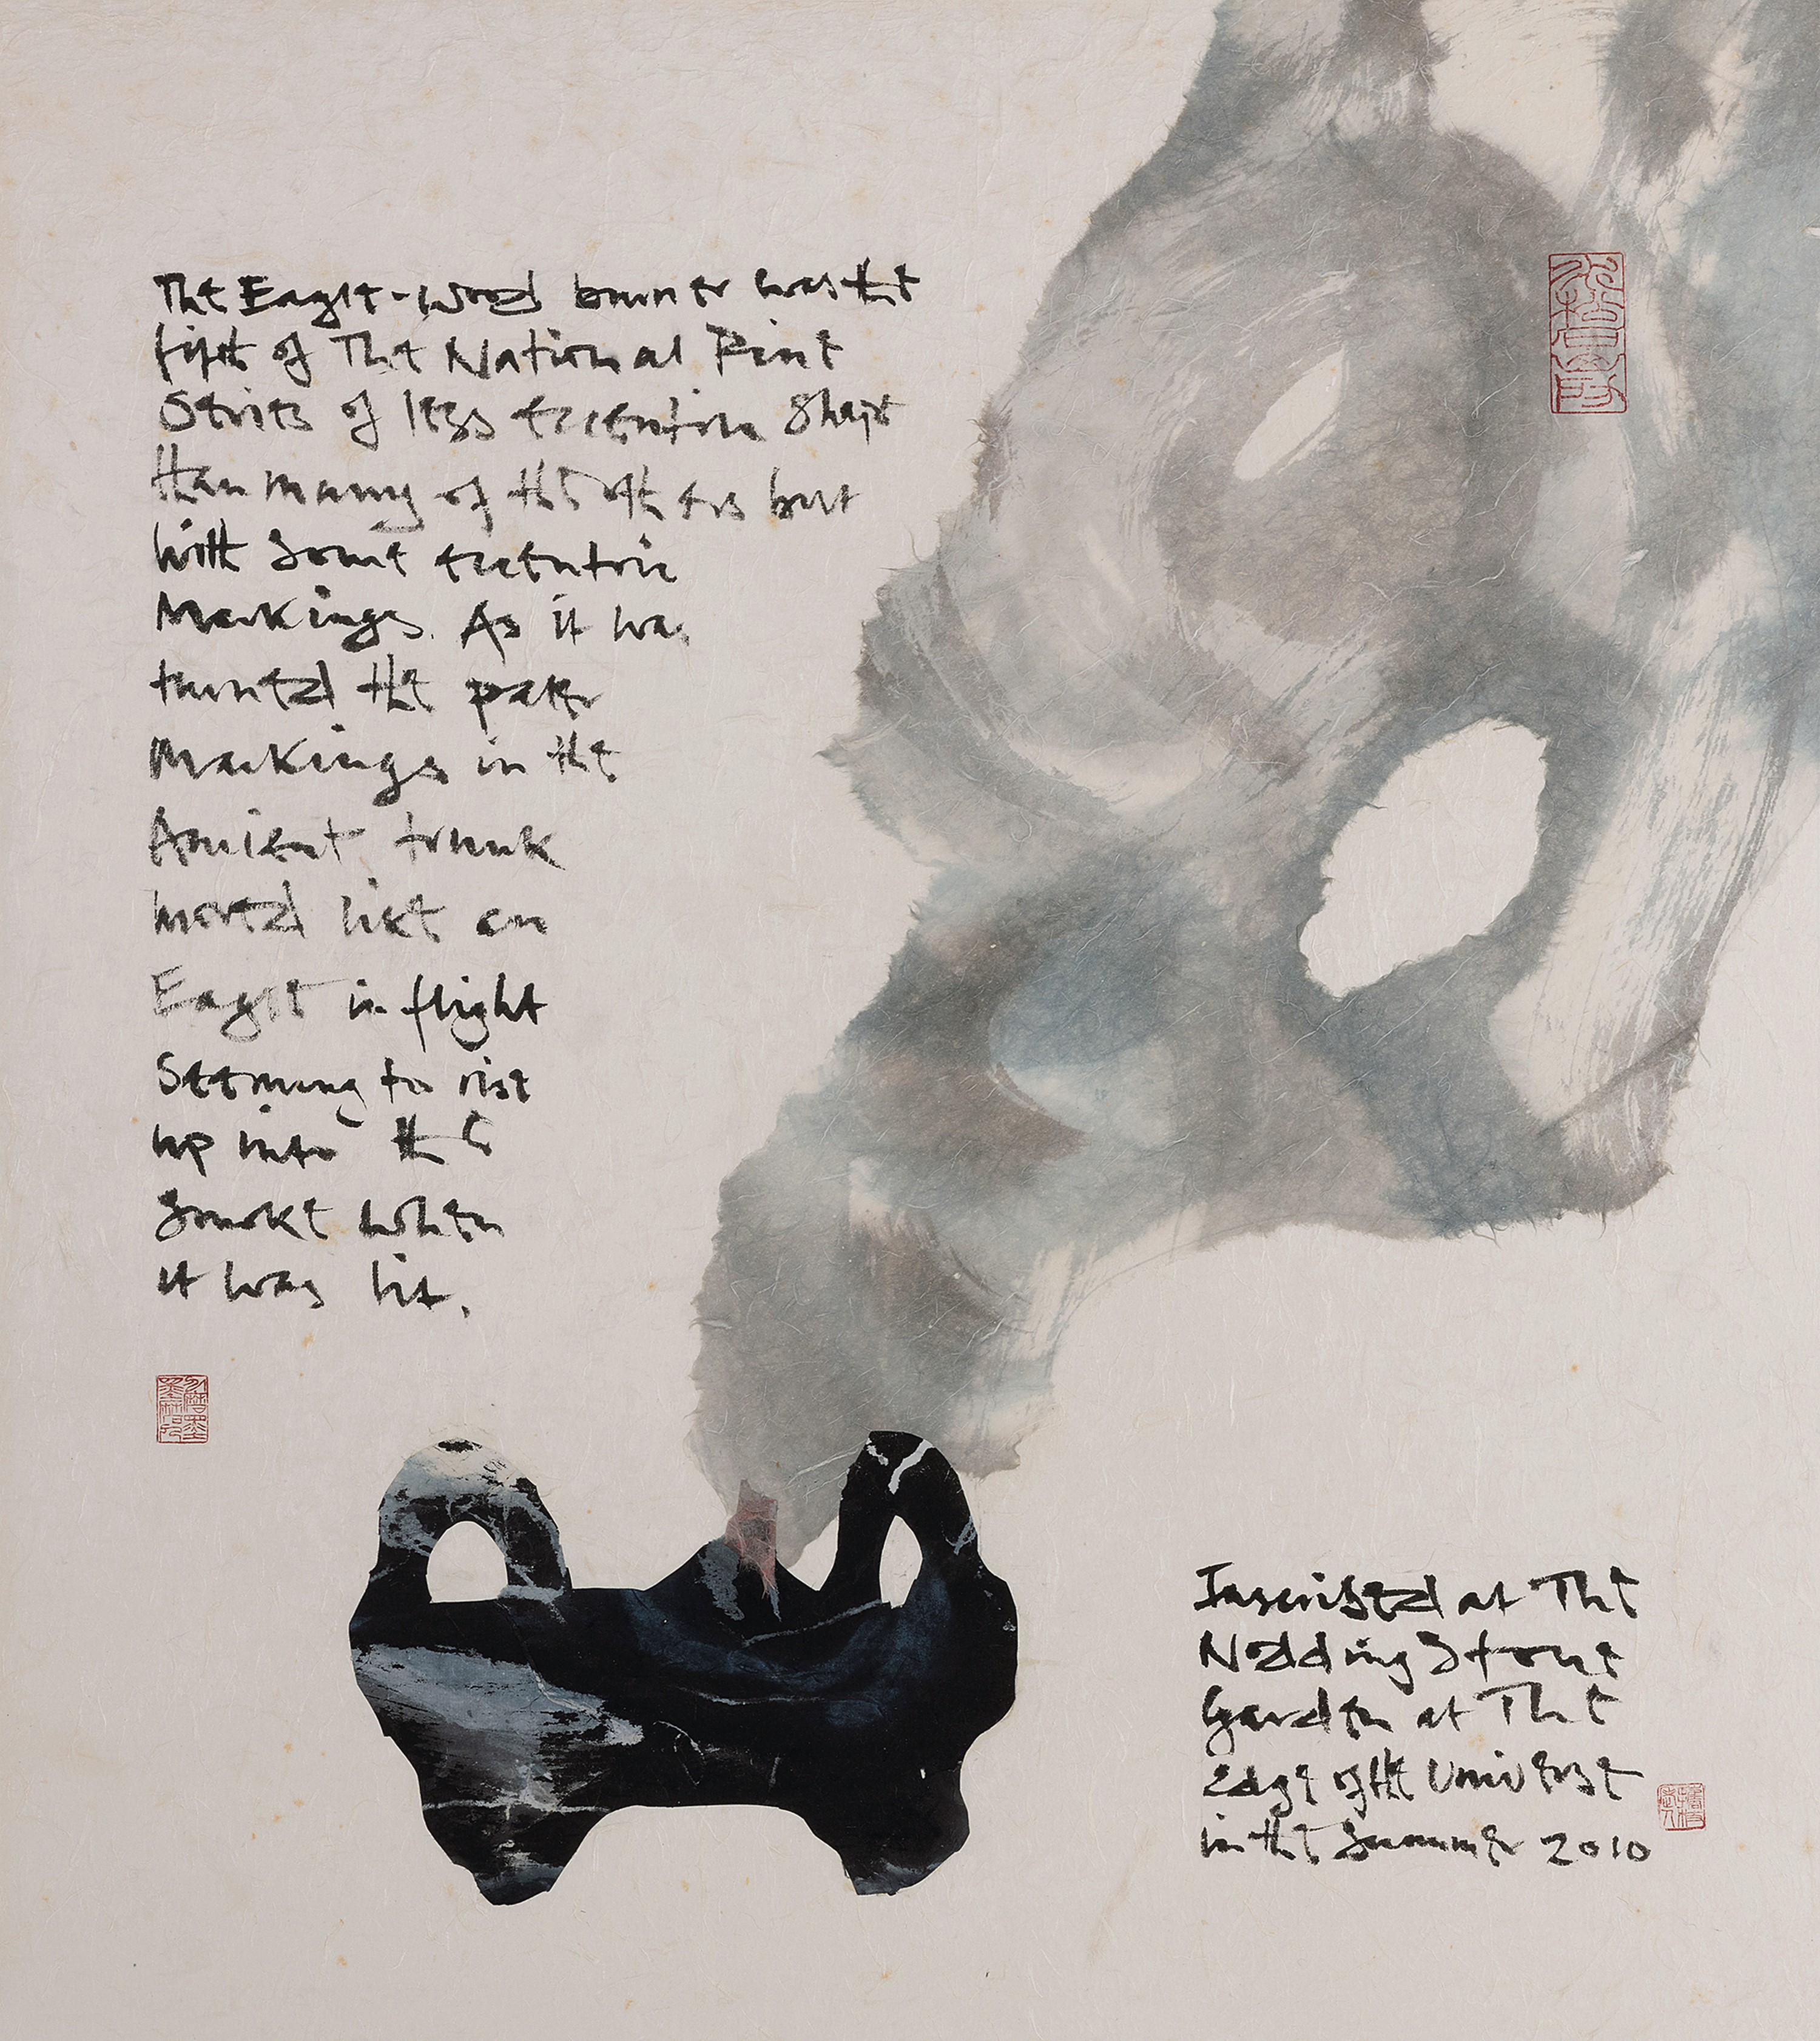 The Eagle-wood burner was the
of The National Pine
Series of less eccentric shape
than many of the others but
with some eccentric
Markings. As it was
turned the paler
Markings in the
Ancient trunk
moved like an
Eagle in flight
Seeming to rise
up into the
Smoke when
it was lit.
水松石山房
Inscribed at The
Nodding Stone
Garden at The
edge of the Universe
in the Summer 2010